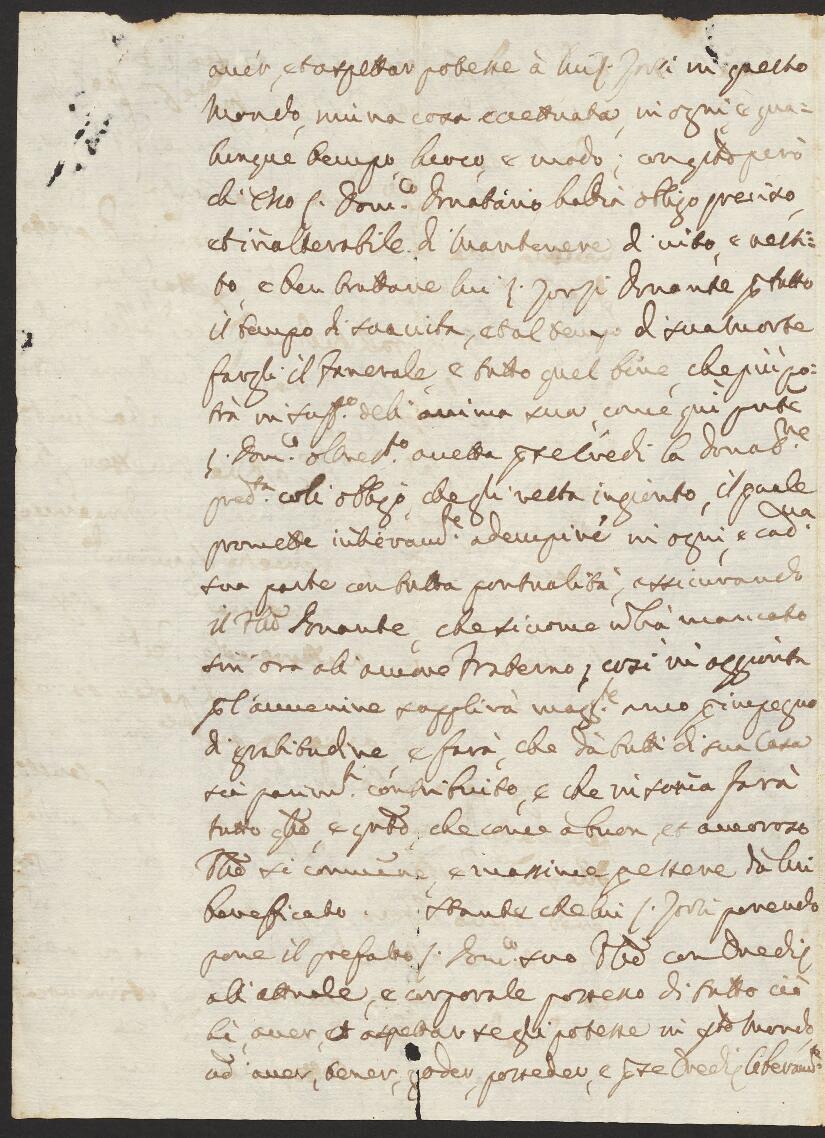 aver, et aspettar potesse à lui s. Jorzi in questo
Mondo, niuna cosa eccettuata, in ogni, e qua=
lunque tempo, luoco, e modo; con qsto però
ch'esso s. Dom.co donatario habbia obligo preciso,
et inalterabile di mantenere di vito, e vesti=
to, e ben trattare lui s. Jorzi donante p tutto
il tempo di sua vita, et al tempo di sua morte
fargli il funerale, e tutto quel bene, che più po=
trà in suff.o dell'anima sua, come quì pnte
s. Dom.co accetta p se et eredi la donat.ne
pred.ta coll'obligo, che gli resta ingionto, il quale
promette intieram.te adempire in ogni, e cad.una
sua parte con tutta pontualità, assicurando
il donante, che siccome n hà mancato
sin'ora all'amore fraterno, così in aggionta
p l'avvenire supplirà magg.te p impegno
di gratitudine, e farà, che dà tutti di sua Casa
sia parim.ti contribuito, e che in soma farà
tutto qllo, e qnto, che come à buon, et amoroso
si conviene, e massime p essere dà lui
beneficato. Stante che lui s. Jorzi ponendo
pone il prefatto s. Dom.co suo con eredi
all'attuale, e corporale possesso di tutto ciò
hà, aver, et aspettar se gli potesse in qsto Mondo,
ad aver, tener, goder, posseder, e p se eredi liberam.te